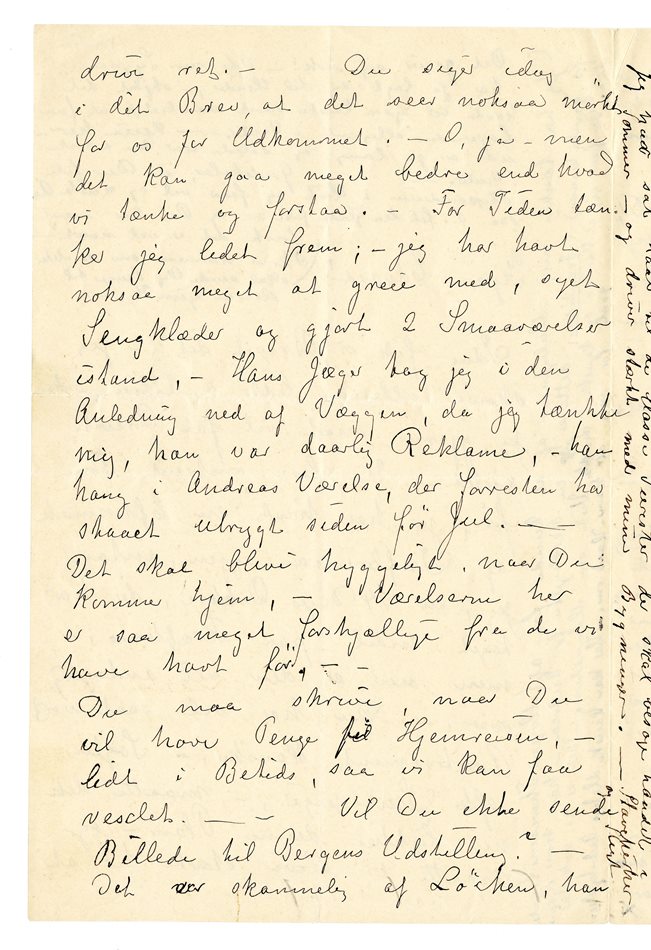 drive ret. — Du siger idag
i dit Brev, at det seer noksaa mörkt
for os for Udkommet. — O, ja — men
det kan gaa meget bedre end hvad
vi tænke og forstaa. — For Tiden tæn-
ker jeg lidet frem; — jeg har havt
noksaa meget at greie med, syet
Sengklæder og gjort 2 Smaaværelser
istand, — Hans Jæger tog jeg i den
Anledning ned af Væggen, da jeg tænkte
mig, han var daarlig Reklame, — han
hang i Andreas Værelse, der forresten har
staaet ubrygt siden før Jul. —
Det skal blive hyggeligt, naar Du
komme hjem, — Værelserne her
er saa meget forskjællige fra de vi
have havt før, — —
Du maa skrive, naar Du
vil have Penge til Hjemreisen, —
lidt i Betids, saa vi kan faa
vexlet. — — Vil Du ikke sende
Billede til Bergens Udstilling? —
Det var skammelig af Löchen, han
Jeg har sat de Turister der skal besøge landet i
Sommer — og driver stærkt med mine
og